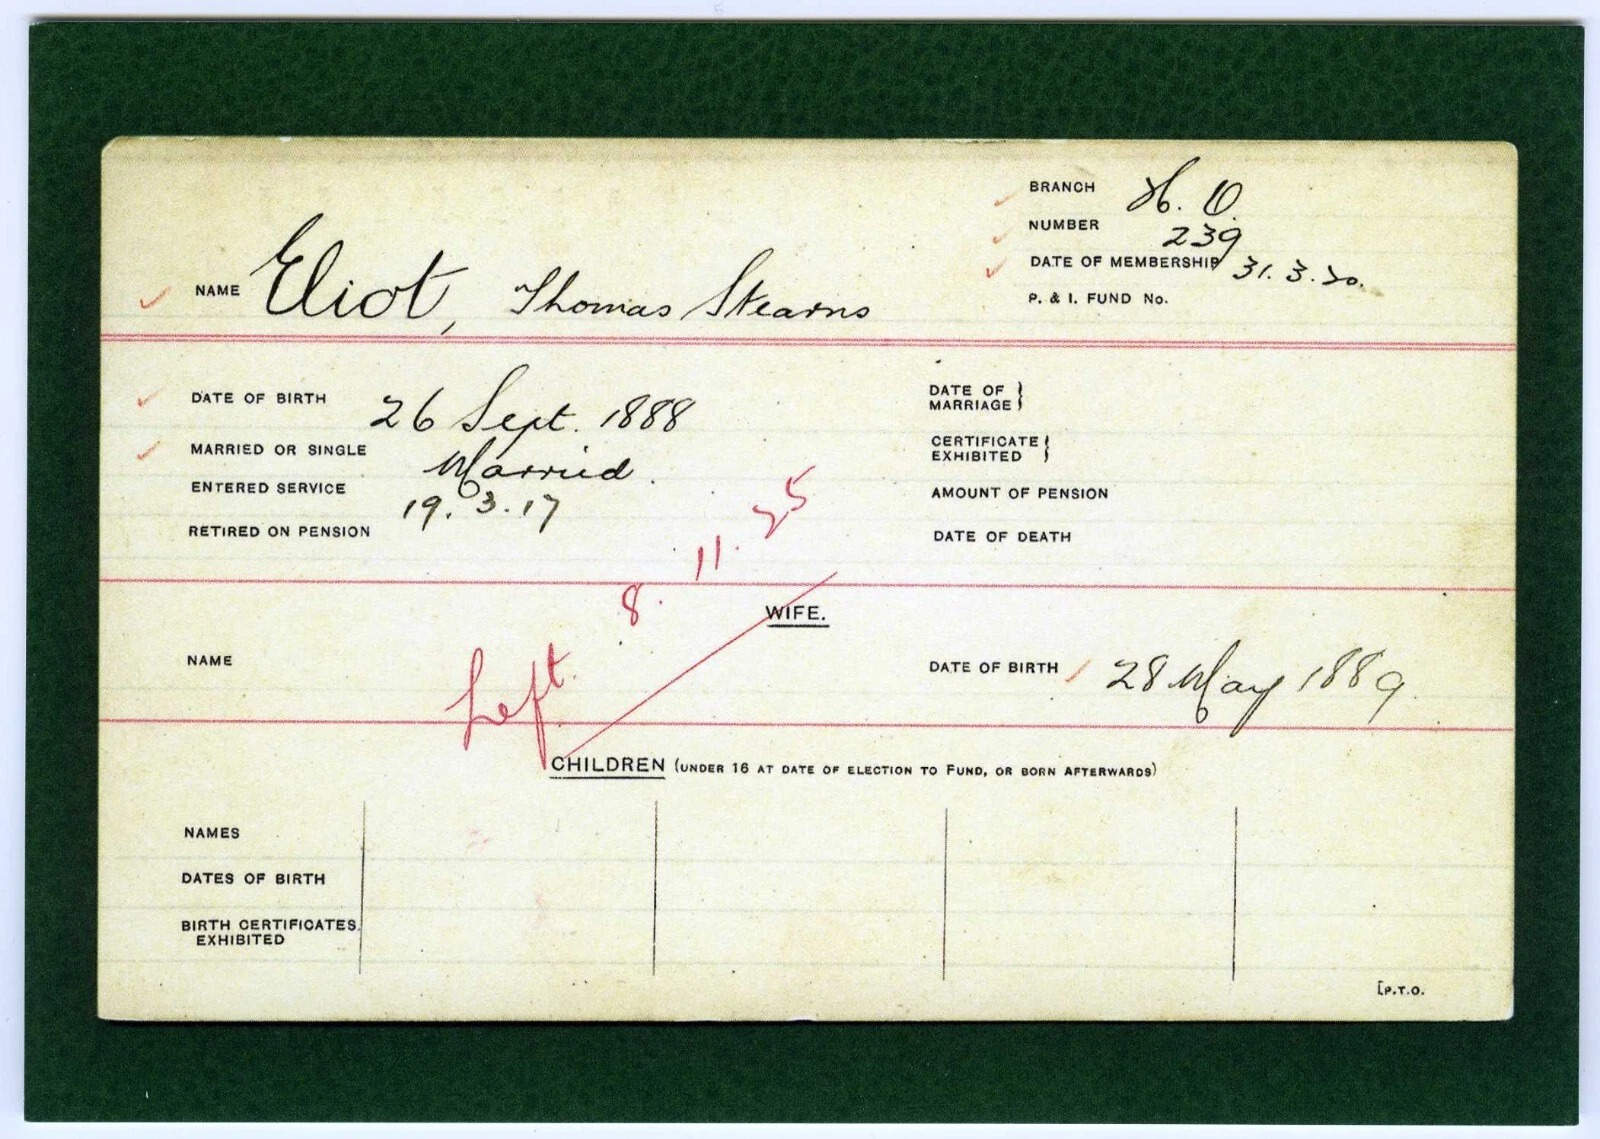 BRANCH H. O.
NUMBER 239
DATE OF MEMBERSHIP 31. 3. 20.
NAME Eliot, Thomas Stearns
P. & I. FUND No.
DATE OF BIRTH 26 Sept. 1888
DATE OF MARRIAGE }
MARRIED OR SINGLE Married.
CERTIFICATE EXHIBITED }
ENTERED SERVICE 19. 3. 17
AMOUNT OF PENSION
RETIRED ON PENSION
DATE OF DEATH
Left. 8. 11. 25
WIFE.
NAME
DATE OF BIRTH 28 May 1889.
CHILDREN (UNDER 16 AT DATE OF ELECTION TO FUND, OR BORN AFTERWARDS)
NAMES
DATES OF BIRTH
BIRTH CERTIFICATES
EXHIBITED
[P.T.O.